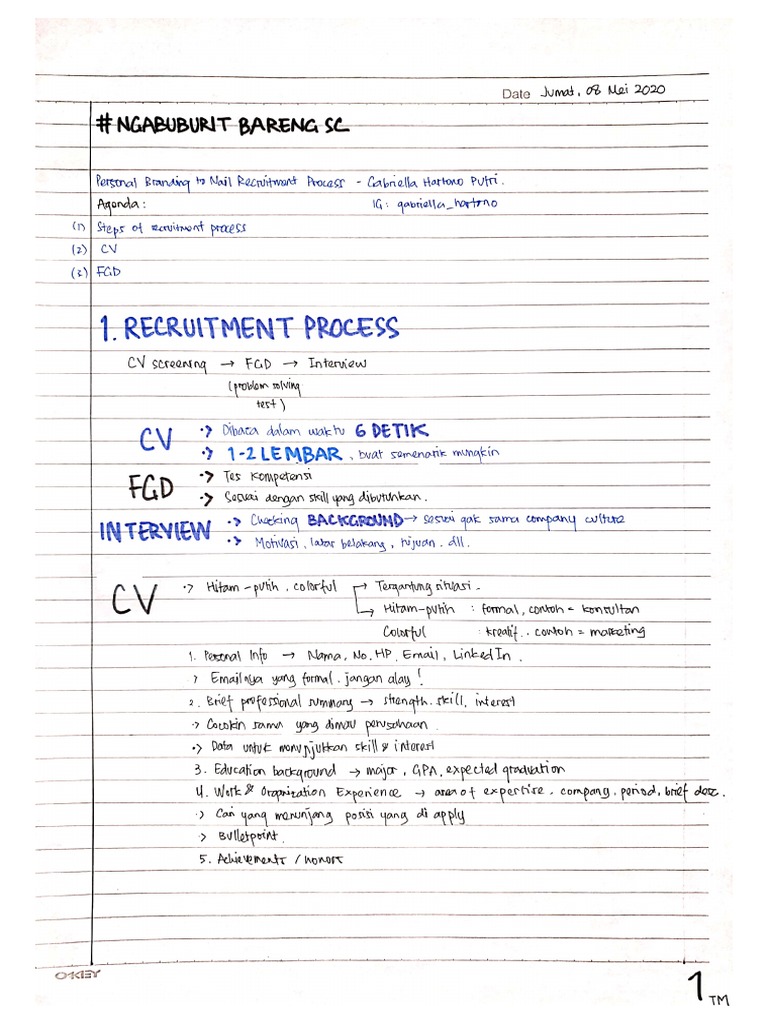 Date Jumat, 08 Mei 2020
# NGABUBURIT BARENG SC
Personal Branding to Nail Recruitment Process - Gabriella Hartono Putri.
Agenda : IG : gabriella_hartono
(1) Steps of recruitment process
(2) CV
(3) FGD
1. RECRUITMENT PROCESS
CV screening → FGD → Interview
(problem solving
test)
CV
·> Dibaca dalam waktu 6 DETIK
·> 1-2 LEMBAR, buat semenarik mungkin
FGD
·> Tes kompetensi
·> Sesuai dengan skill yang dibutuhkan.
INTERVIEW
·> Checking BACKGROUND → sesuai gak sama company culture
·> Motivasi, latar belakang, tujuan. dll.
CV
·> Hitam-putih, colorful → Tergantung situasi.
→ Hitam-putih : formal, contoh = konsultan
Colorful : kreatif.. contoh = marketing
1. Personal Info → Nama, No. HP, Email, LinkedIn.
·> Emailnya yang formal. jangan alay!
2. Brief professional summary → strength. skill, interest
·> Cocokin sama yang dimau perusahaan
·> Data untuk menunjukkan skill & interest
3. Education background → major, GPA, expected graduation
4. Work & Organization Experience → area of expertise. company. period, brief desc.
·> Cari yang menunjang posisi yang di apply
·> Bulletpoint.
5. Achievements / honors
OKEY
1 TM